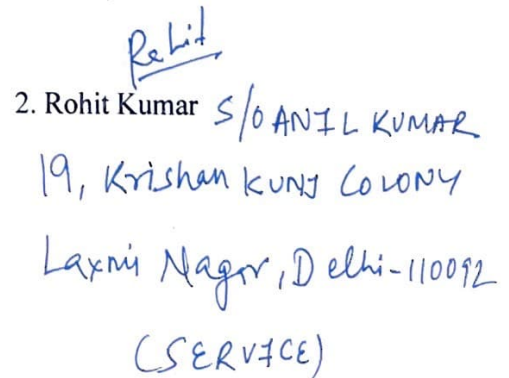 Rohit
2. Rohit Kumar S/O ANIL KUMAR
19, Krishan KUNJ COLONY
Laxmi Nagar, Delhi-110092
(SERVICE)